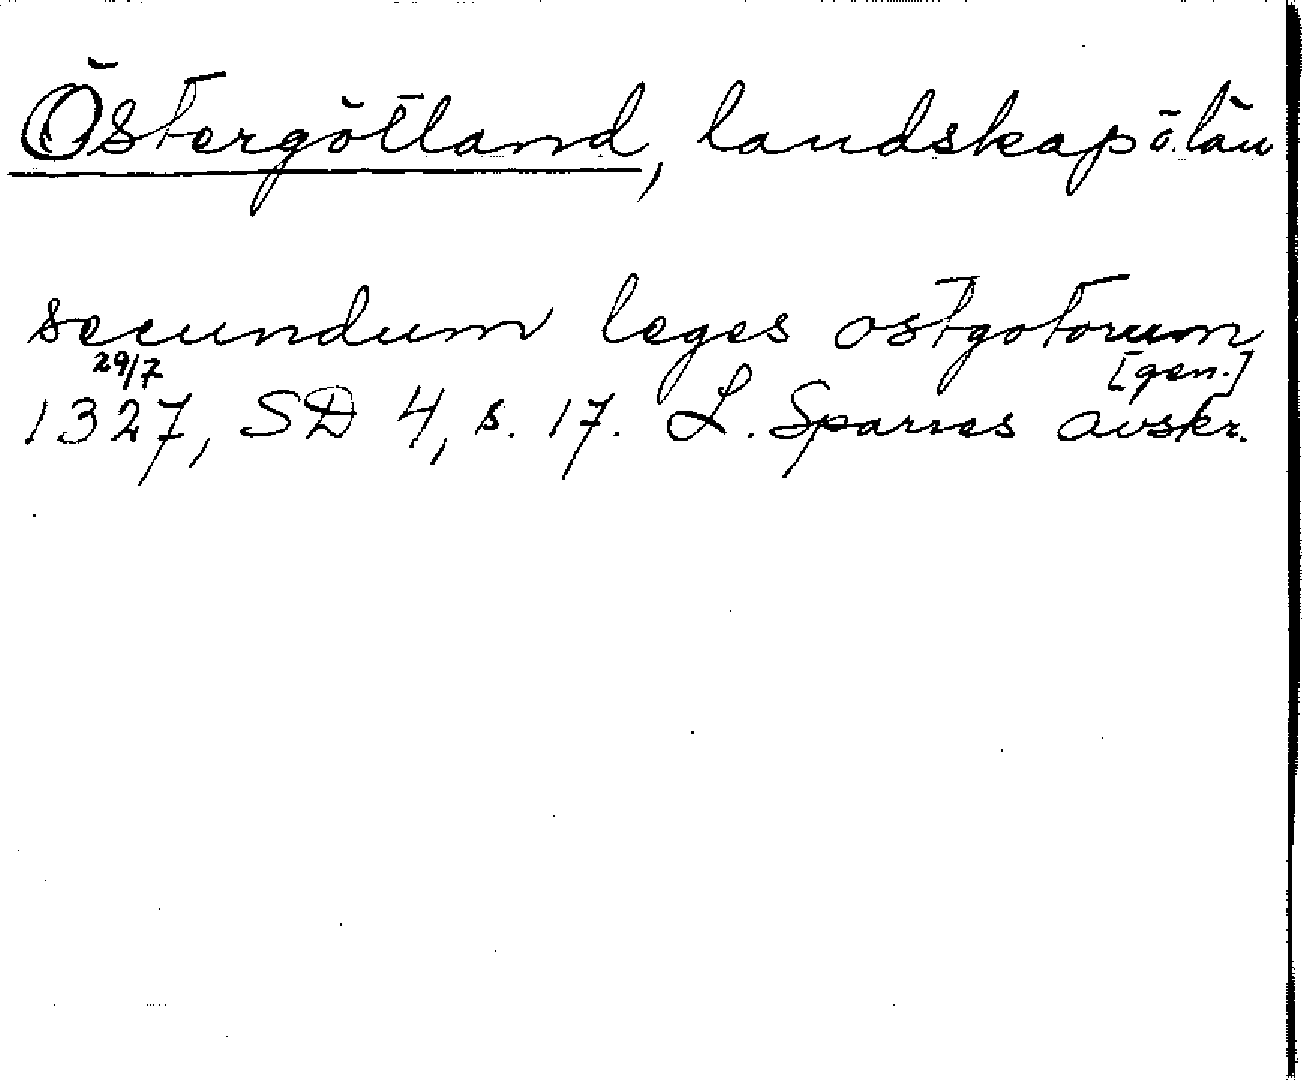 Östergötland, landskap o. län
secundum leges ostgotorum
[gen.]
1327, 29/7 SD 4, s. 17. L. Sparres avskr.